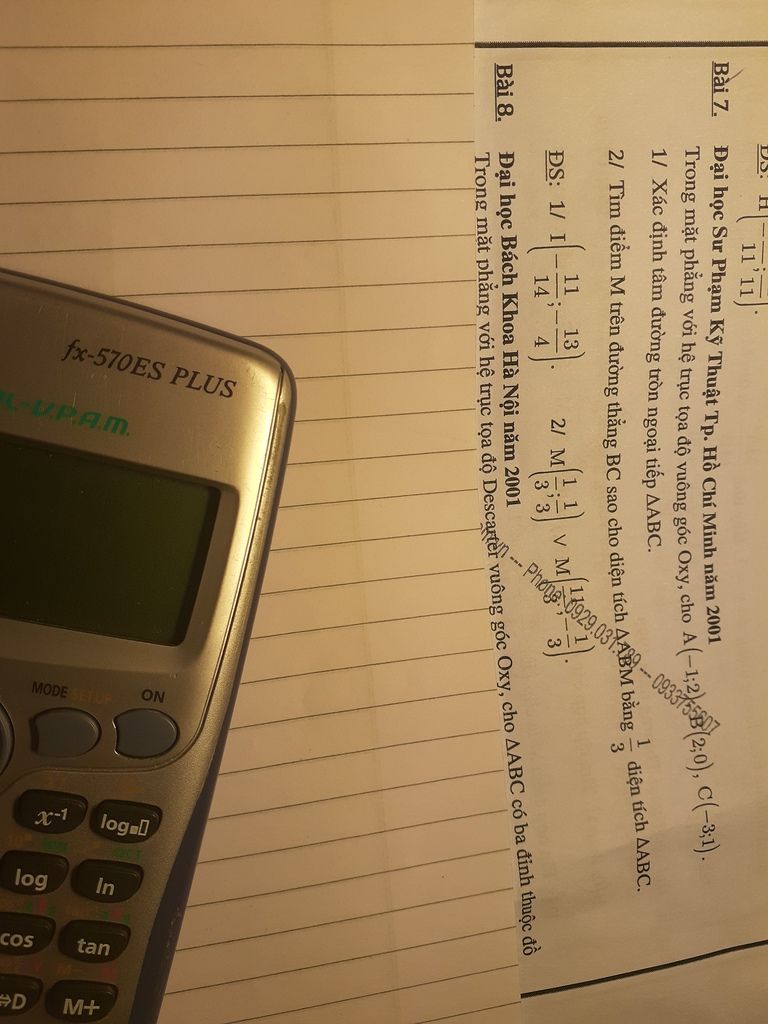 ĐS: H(-—/11; —/11).
Bài 7. Đại học Sư Phạm Kỹ Thuật Tp. Hồ Chí Minh năm 2001
Trong mặt phẳng với hệ trục tọa độ vuông góc Oxy, cho A(−1;2), B(2;0), C(−3;1).
1/ Xác định tâm đường tròn ngoại tiếp ΔABC.
2/ Tìm điểm M trên đường thẳng BC sao cho diện tích ΔABM bằng 1/3 diện tích ΔABC.
ĐS: 1/ I(−11/14; −13/4). 2/ M(1/3; 1/3) ∨ M(11/3; −1/3).
Bài 8. Đại học Bách Khoa Hà Nội năm 2001
Trong mặt phẳng với hệ trục tọa độ Descarter vuông góc Oxy, cho ΔABC có ba đỉnh thuộc đồ
--- Phone: 0929.031.789 --- 0933755607
fx-570ES PLUS
V.P.A.M.
MODE SETUP ON
x⁻¹ log
log ln
cos tan
⇔D M+